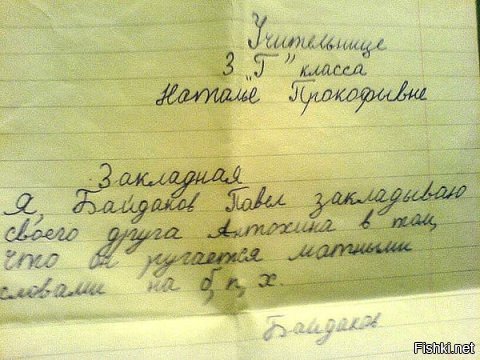 Учительнице
3 "Г" класса
Наталье Прокофивне
Закладная
Я, Байдаков Павел закладываю
своего друга Антохина в том,
что он ругается матными
словами на б, п, х.
Байдаков
Fishki.net